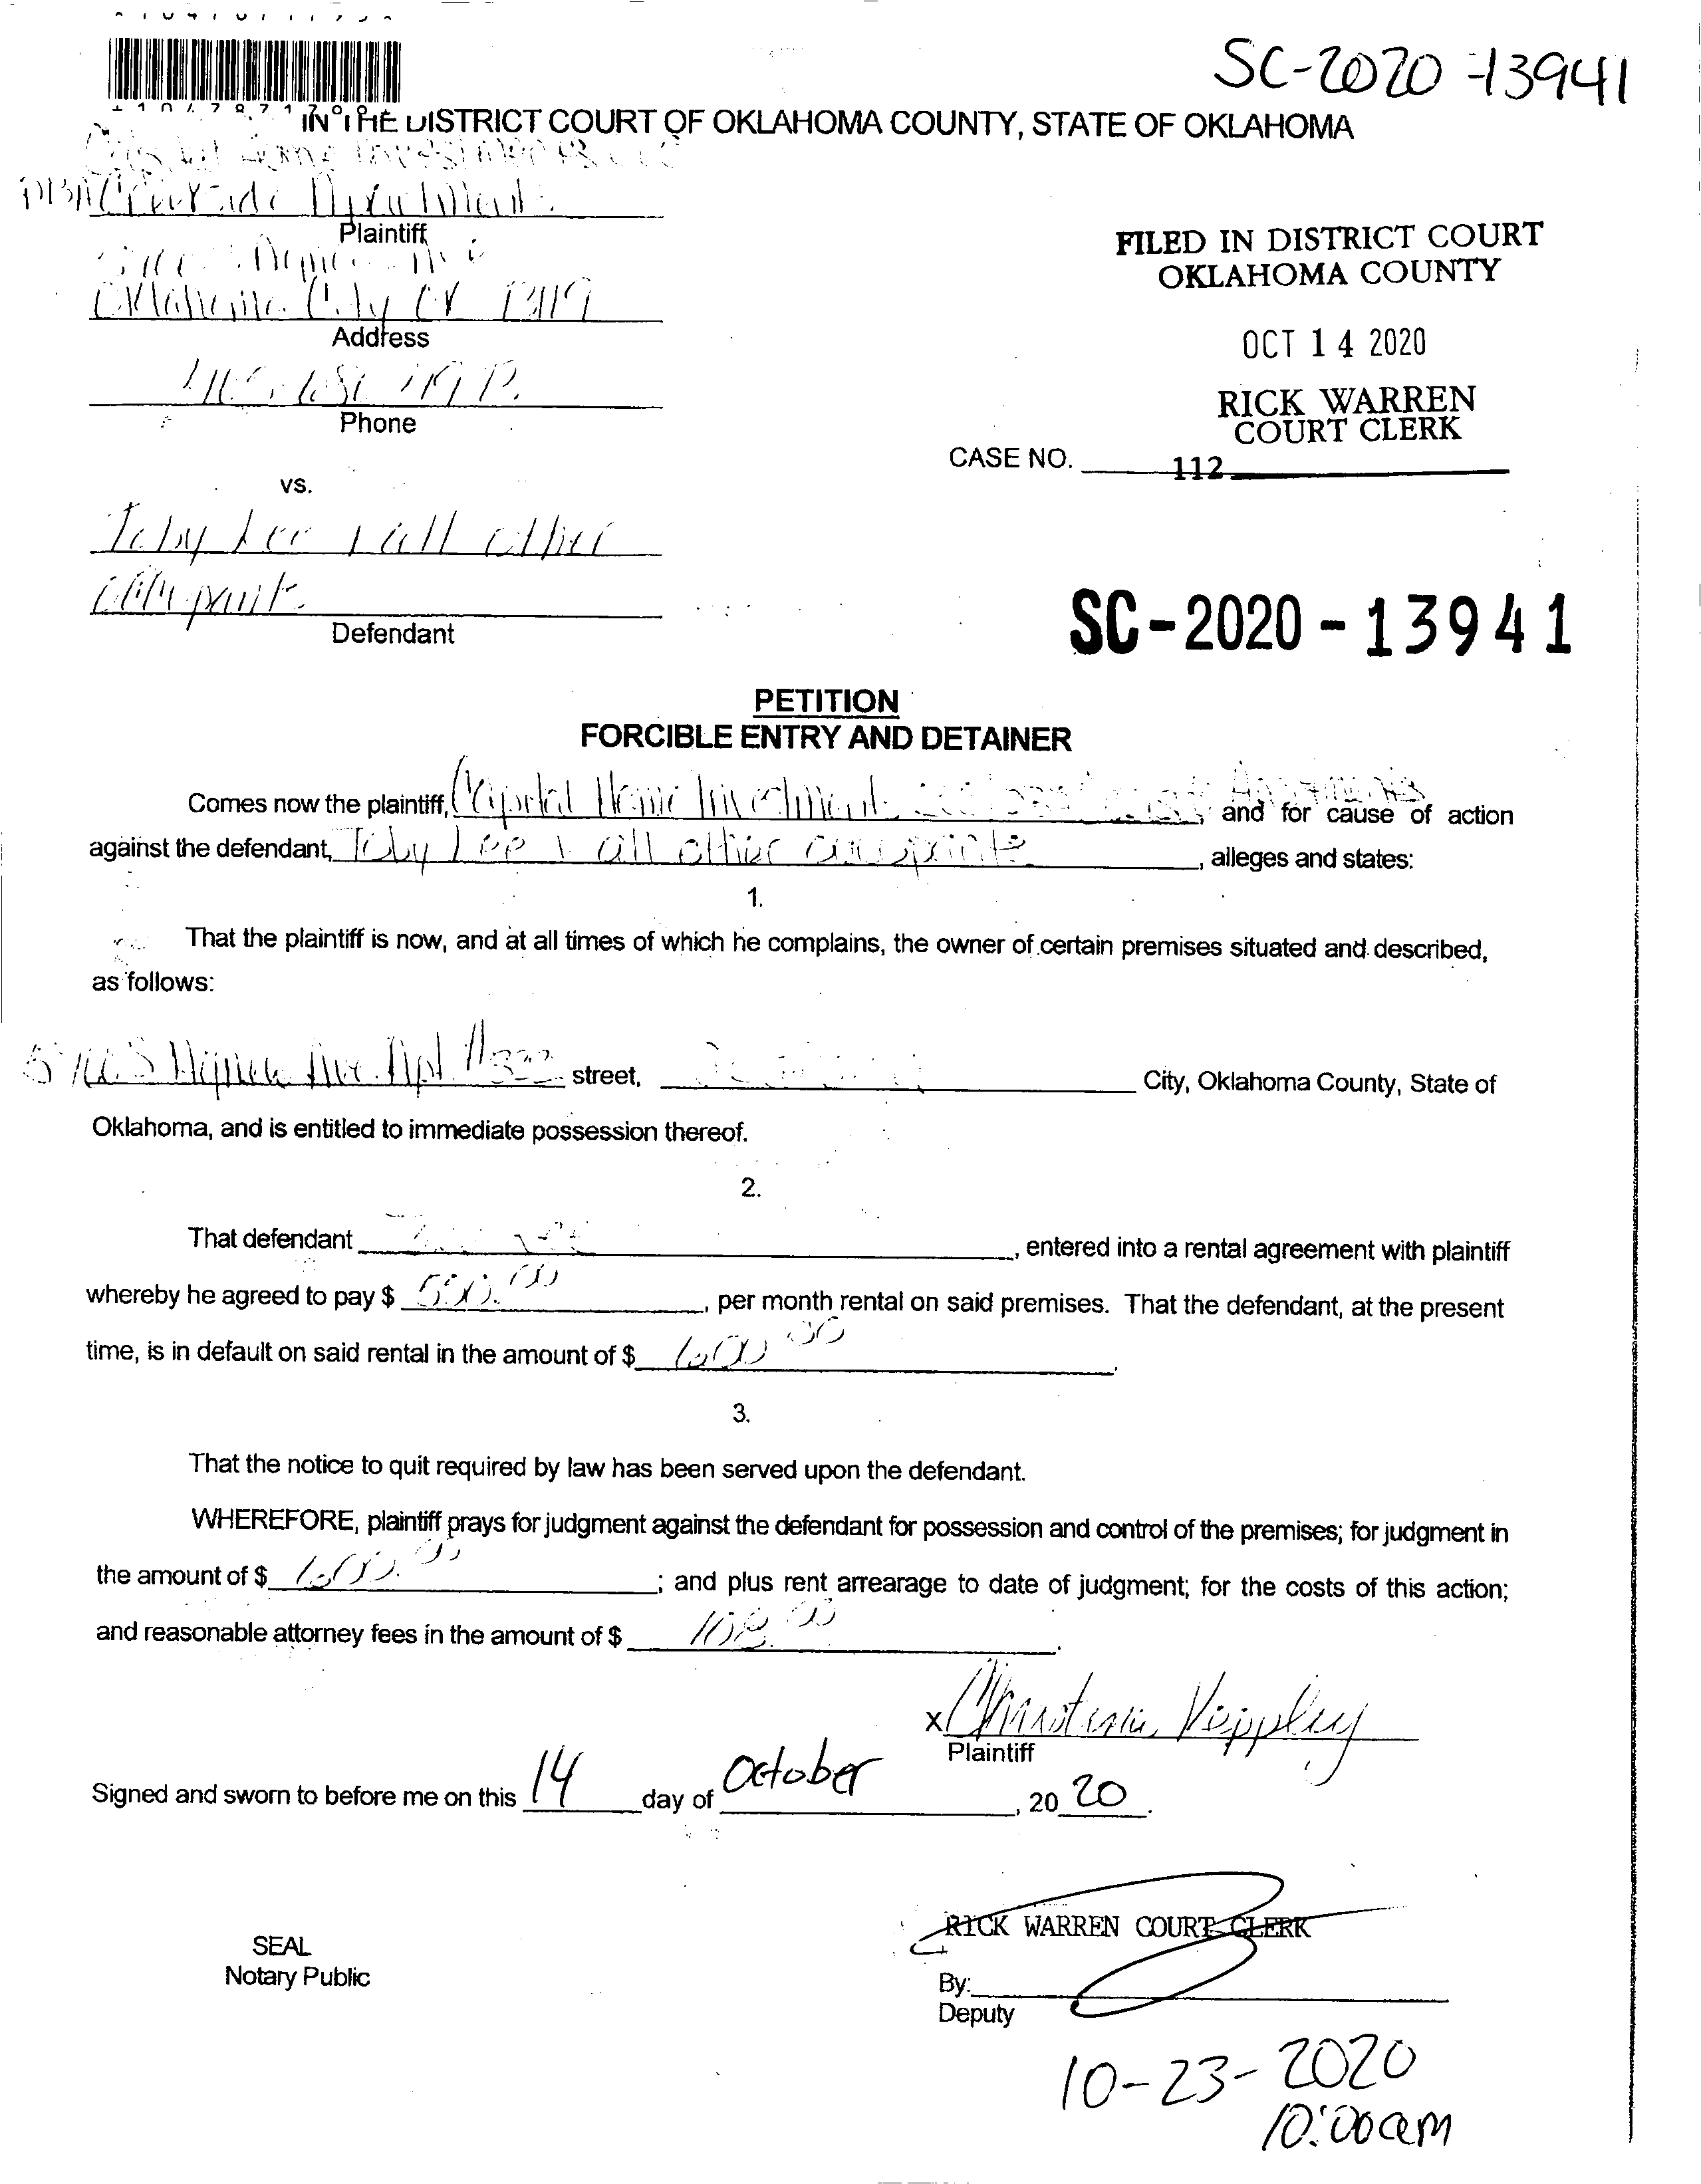 SC-2020-13941
IN THE DISTRICT COURT OF OKLAHOMA COUNTY, STATE OF OKLAHOMA
Plaintiff
Oklahoma City OK
Address
Phone
FILED IN DISTRICT COURT
OKLAHOMA COUNTY
OCT 14 2020
RICK WARREN
COURT CLERK
CASE NO. 112
vs.
Toby Lee & all other
Defendant
SC-2020-13941
PETITION
FORCIBLE ENTRY AND DETAINER
Comes now the plaintiff, Capital Home Investments, and for cause of action
against the defendant, Toby Lee & all other occupants, alleges and states:
1.
That the plaintiff is now, and at all times of which he complains, the owner of certain premises situated and described,
as follows:
Ave Apt street, City, Oklahoma County, State of
Oklahoma, and is entitled to immediate possession thereof.
2.
That defendant , entered into a rental agreement with plaintiff
whereby he agreed to pay $ , per month rental on said premises. That the defendant, at the present
time, is in default on said rental in the amount of $ 600.00.
3.
That the notice to quit required by law has been served upon the defendant.
WHEREFORE, plaintiff prays for judgment against the defendant for possession and control of the premises; for judgment in
the amount of $ 600.00; and plus rent arrearage to date of judgment; for the costs of this action;
and reasonable attorney fees in the amount of $ 108.00.
x Christina
Plaintiff
Signed and sworn to before me on this 14 day of October, 2020.
SEAL
Notary Public
RICK WARREN COURT CLERK
By:
Deputy
10-23-2020
10:00am